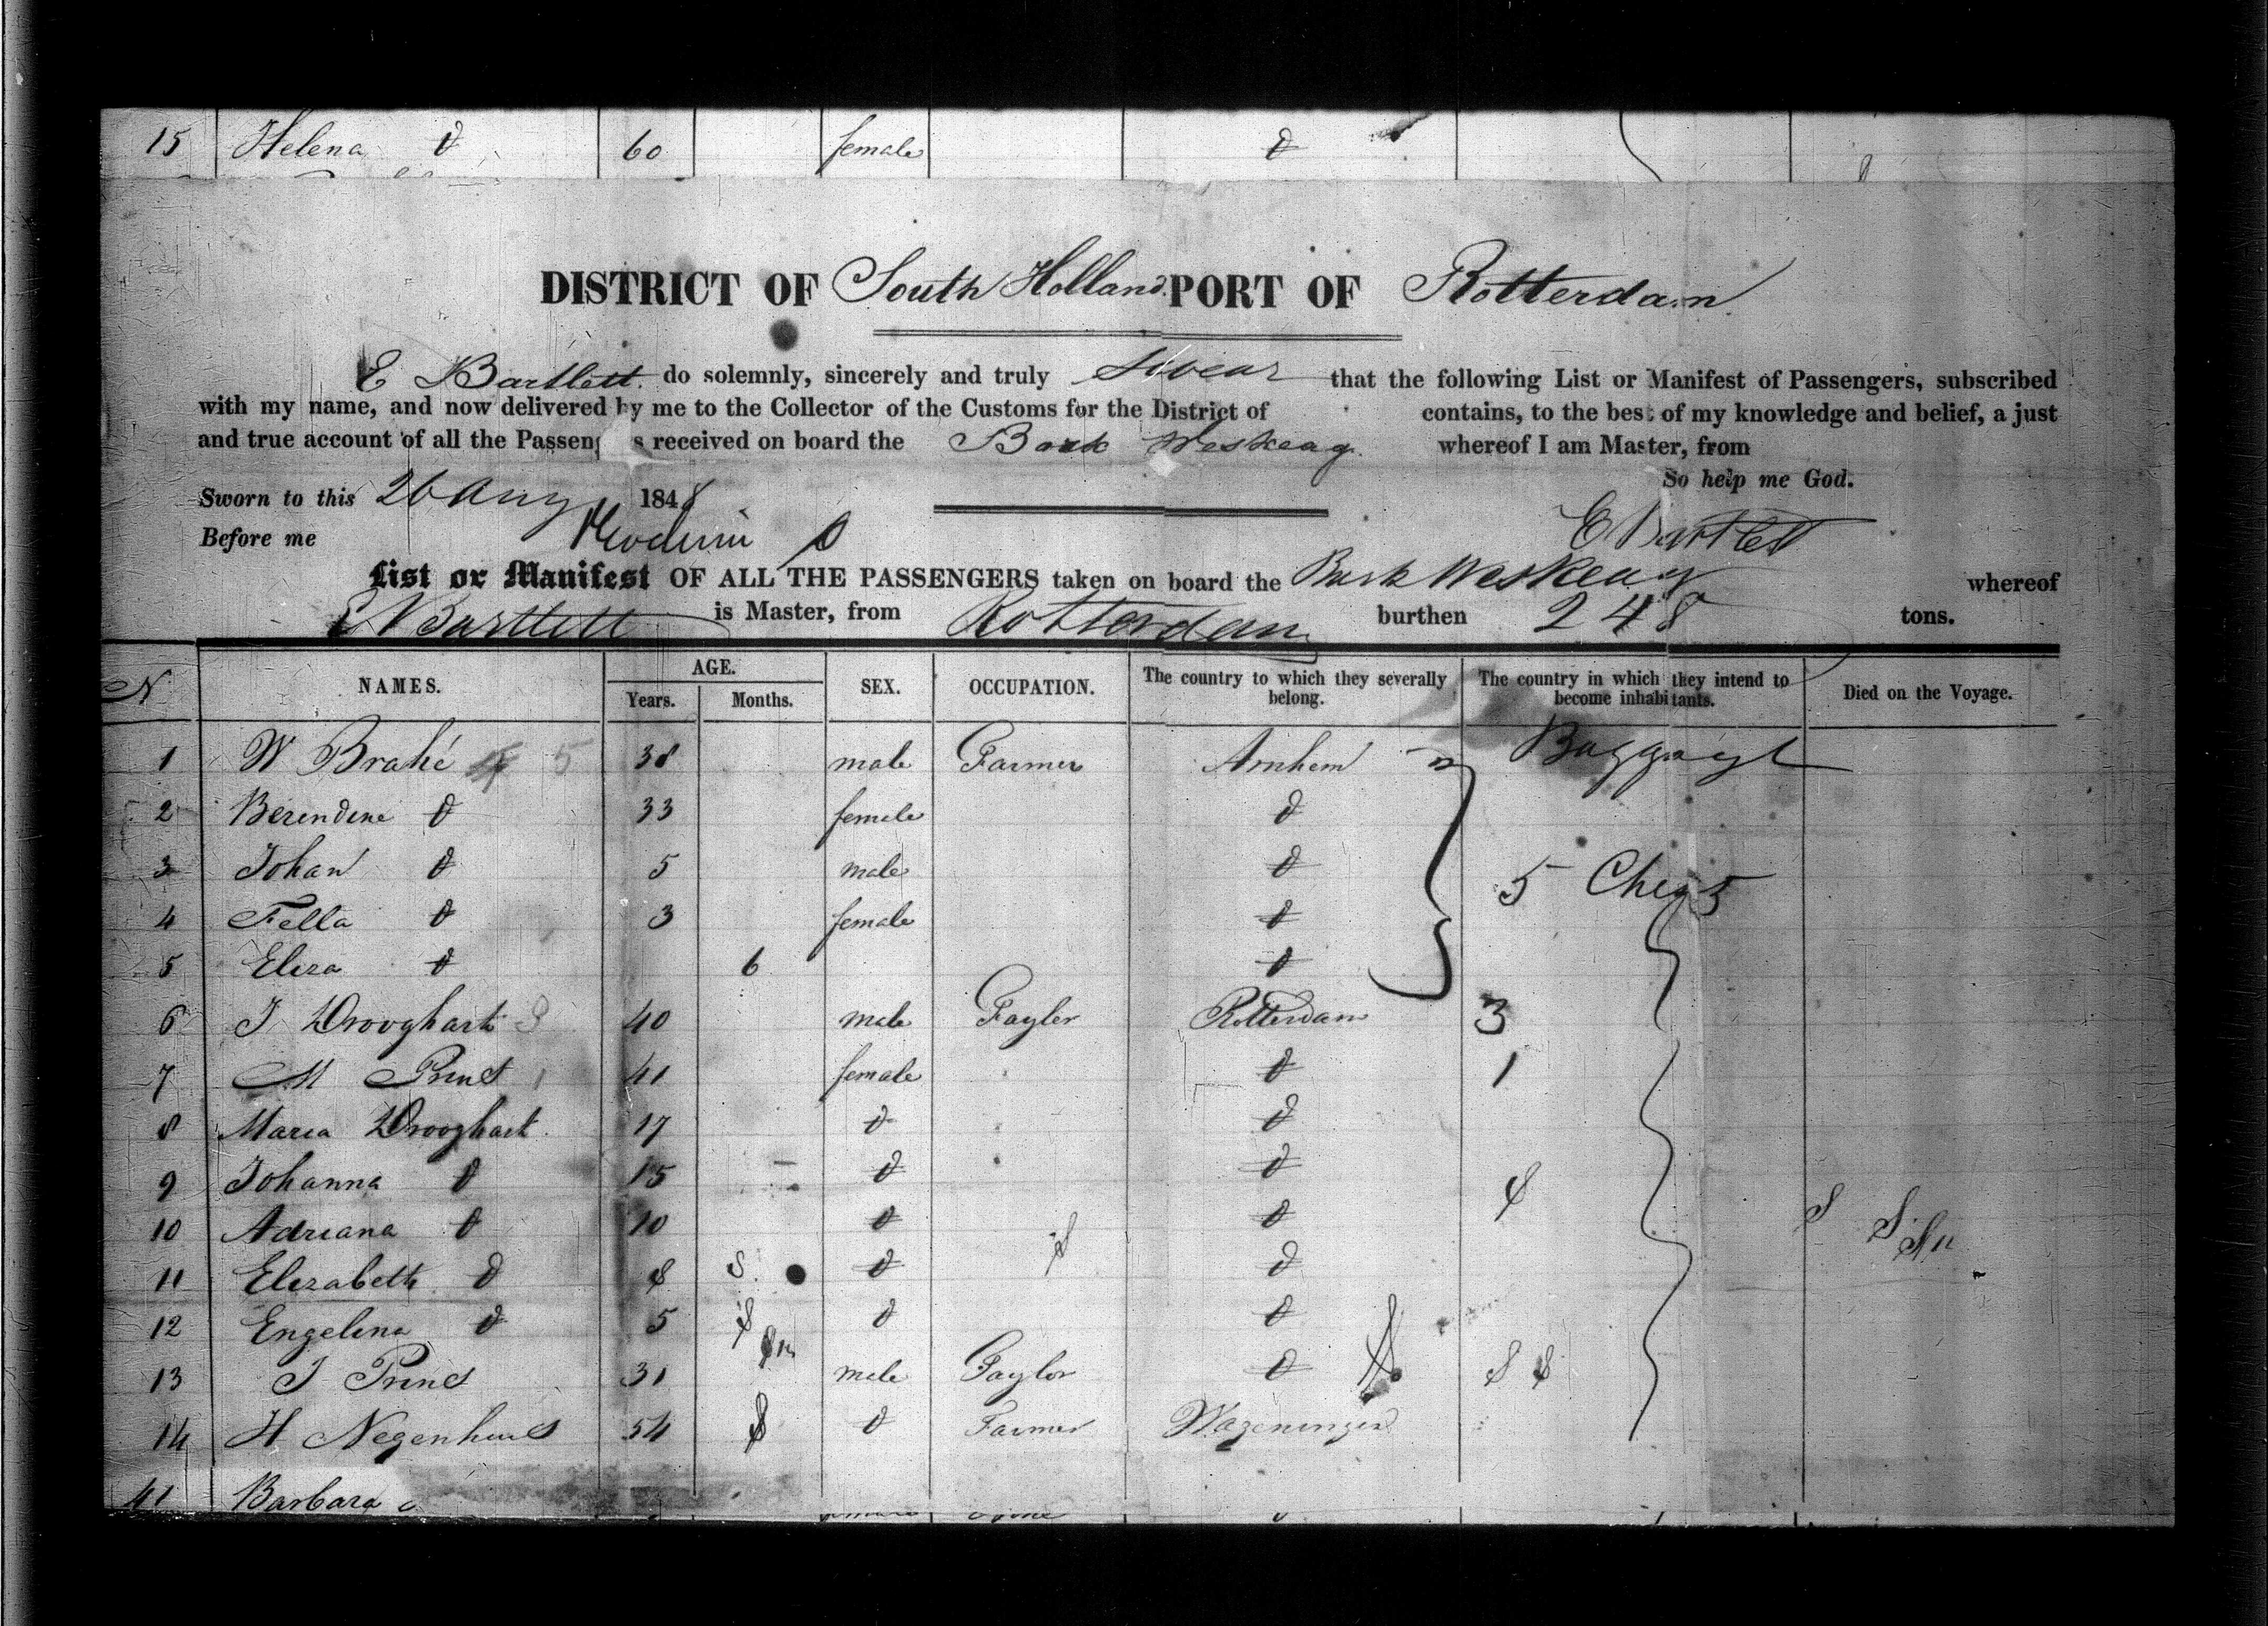 15 Helena đ 60 female đ
DISTRICT OF South Holland PORT OF Rotterdam
E Bartlett do solemnly, sincerely and truly swear that the following List or Manifest of Passengers, subscribed
with my name, and now delivered by me to the Collector of the Customs for the District of contains, to the best of my knowledge and belief, a just
and true account of all the Passen s received on board the Bark Weskeag whereof I am Master, from
So help me God.
Sworn to this 26 Aug 1848
Before me E Bartlett
List or Manifest OF ALL THE PASSENGERS taken on board the Bark Weskeag whereof
E Bartlett is Master, from Rotterdam burthen 248 tons.
N NAMES. AGE. Years. Months. SEX. OCCUPATION. The country to which they severally belong. The country in which they intend to become inhabitants. Died on the Voyage.
1 W Brahé 5 38 male Farmer Arnhem Baggage
2 Berendine đ 33 female đ
3 Johan đ 5 male đ 5
4 Fella đ 3 female đ
5 Eliza đ 6 đ
6 J Drooghart 3 40 male Taylor Rotterdam 3
7 M Prins 1 41 female đ 1
8 Maria Drooghart 17 đ đ
9 Johanna đ 15 đ đ
10 Adriana đ 10 đ đ
11 Elizabeth đ 8 đ đ
12 Engelina đ 5 đ đ
13 J Prins 31 male Taylor đ
14 H Negenhuis 54 đ Farmer Wageningen
41 Barbara